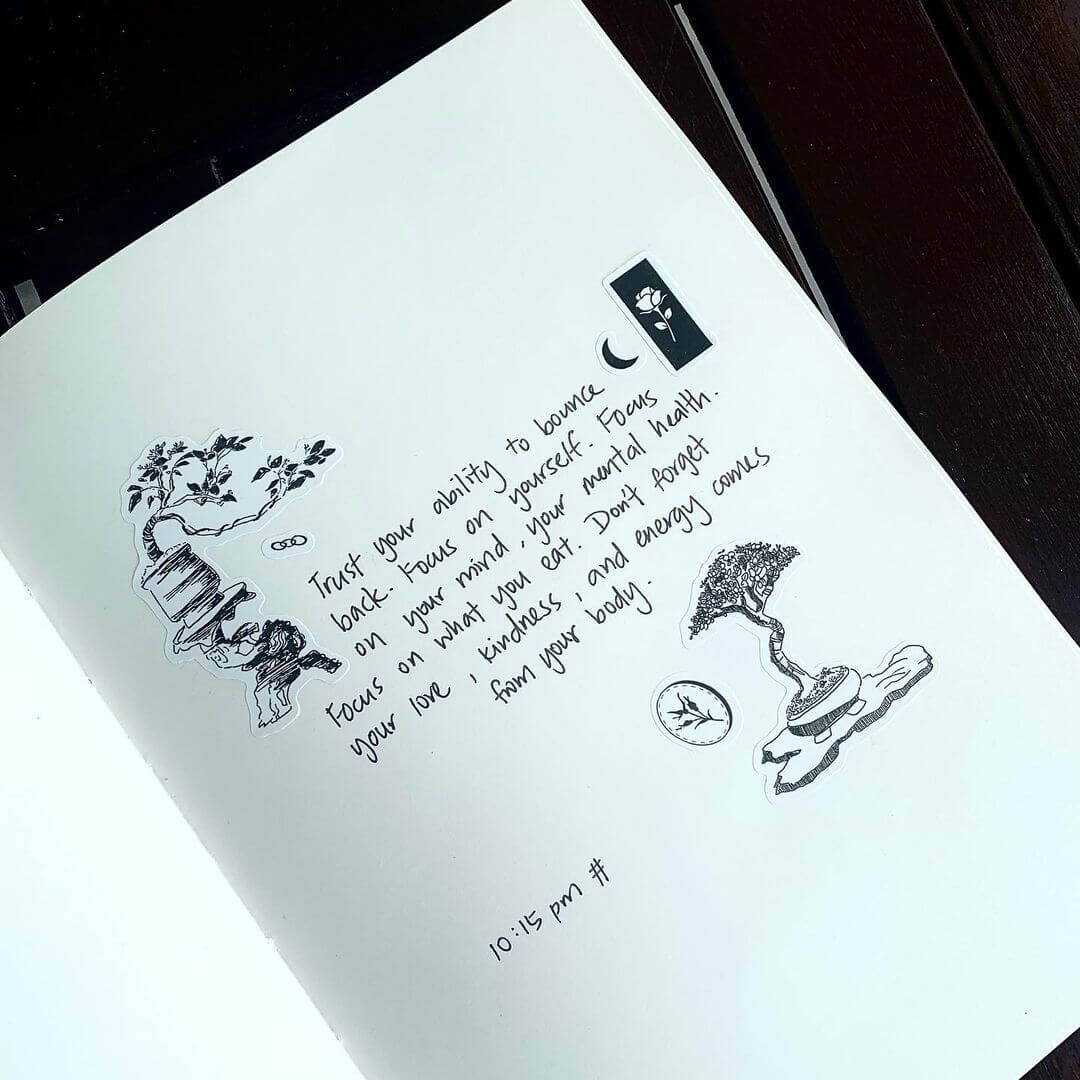 Trust your ability to bounce
back. Focus on yourself. Focus
on your mind, your mental health.
Focus on what you eat. Don't forget
your love, kindness, and energy comes
from your body.
10:15 pm #